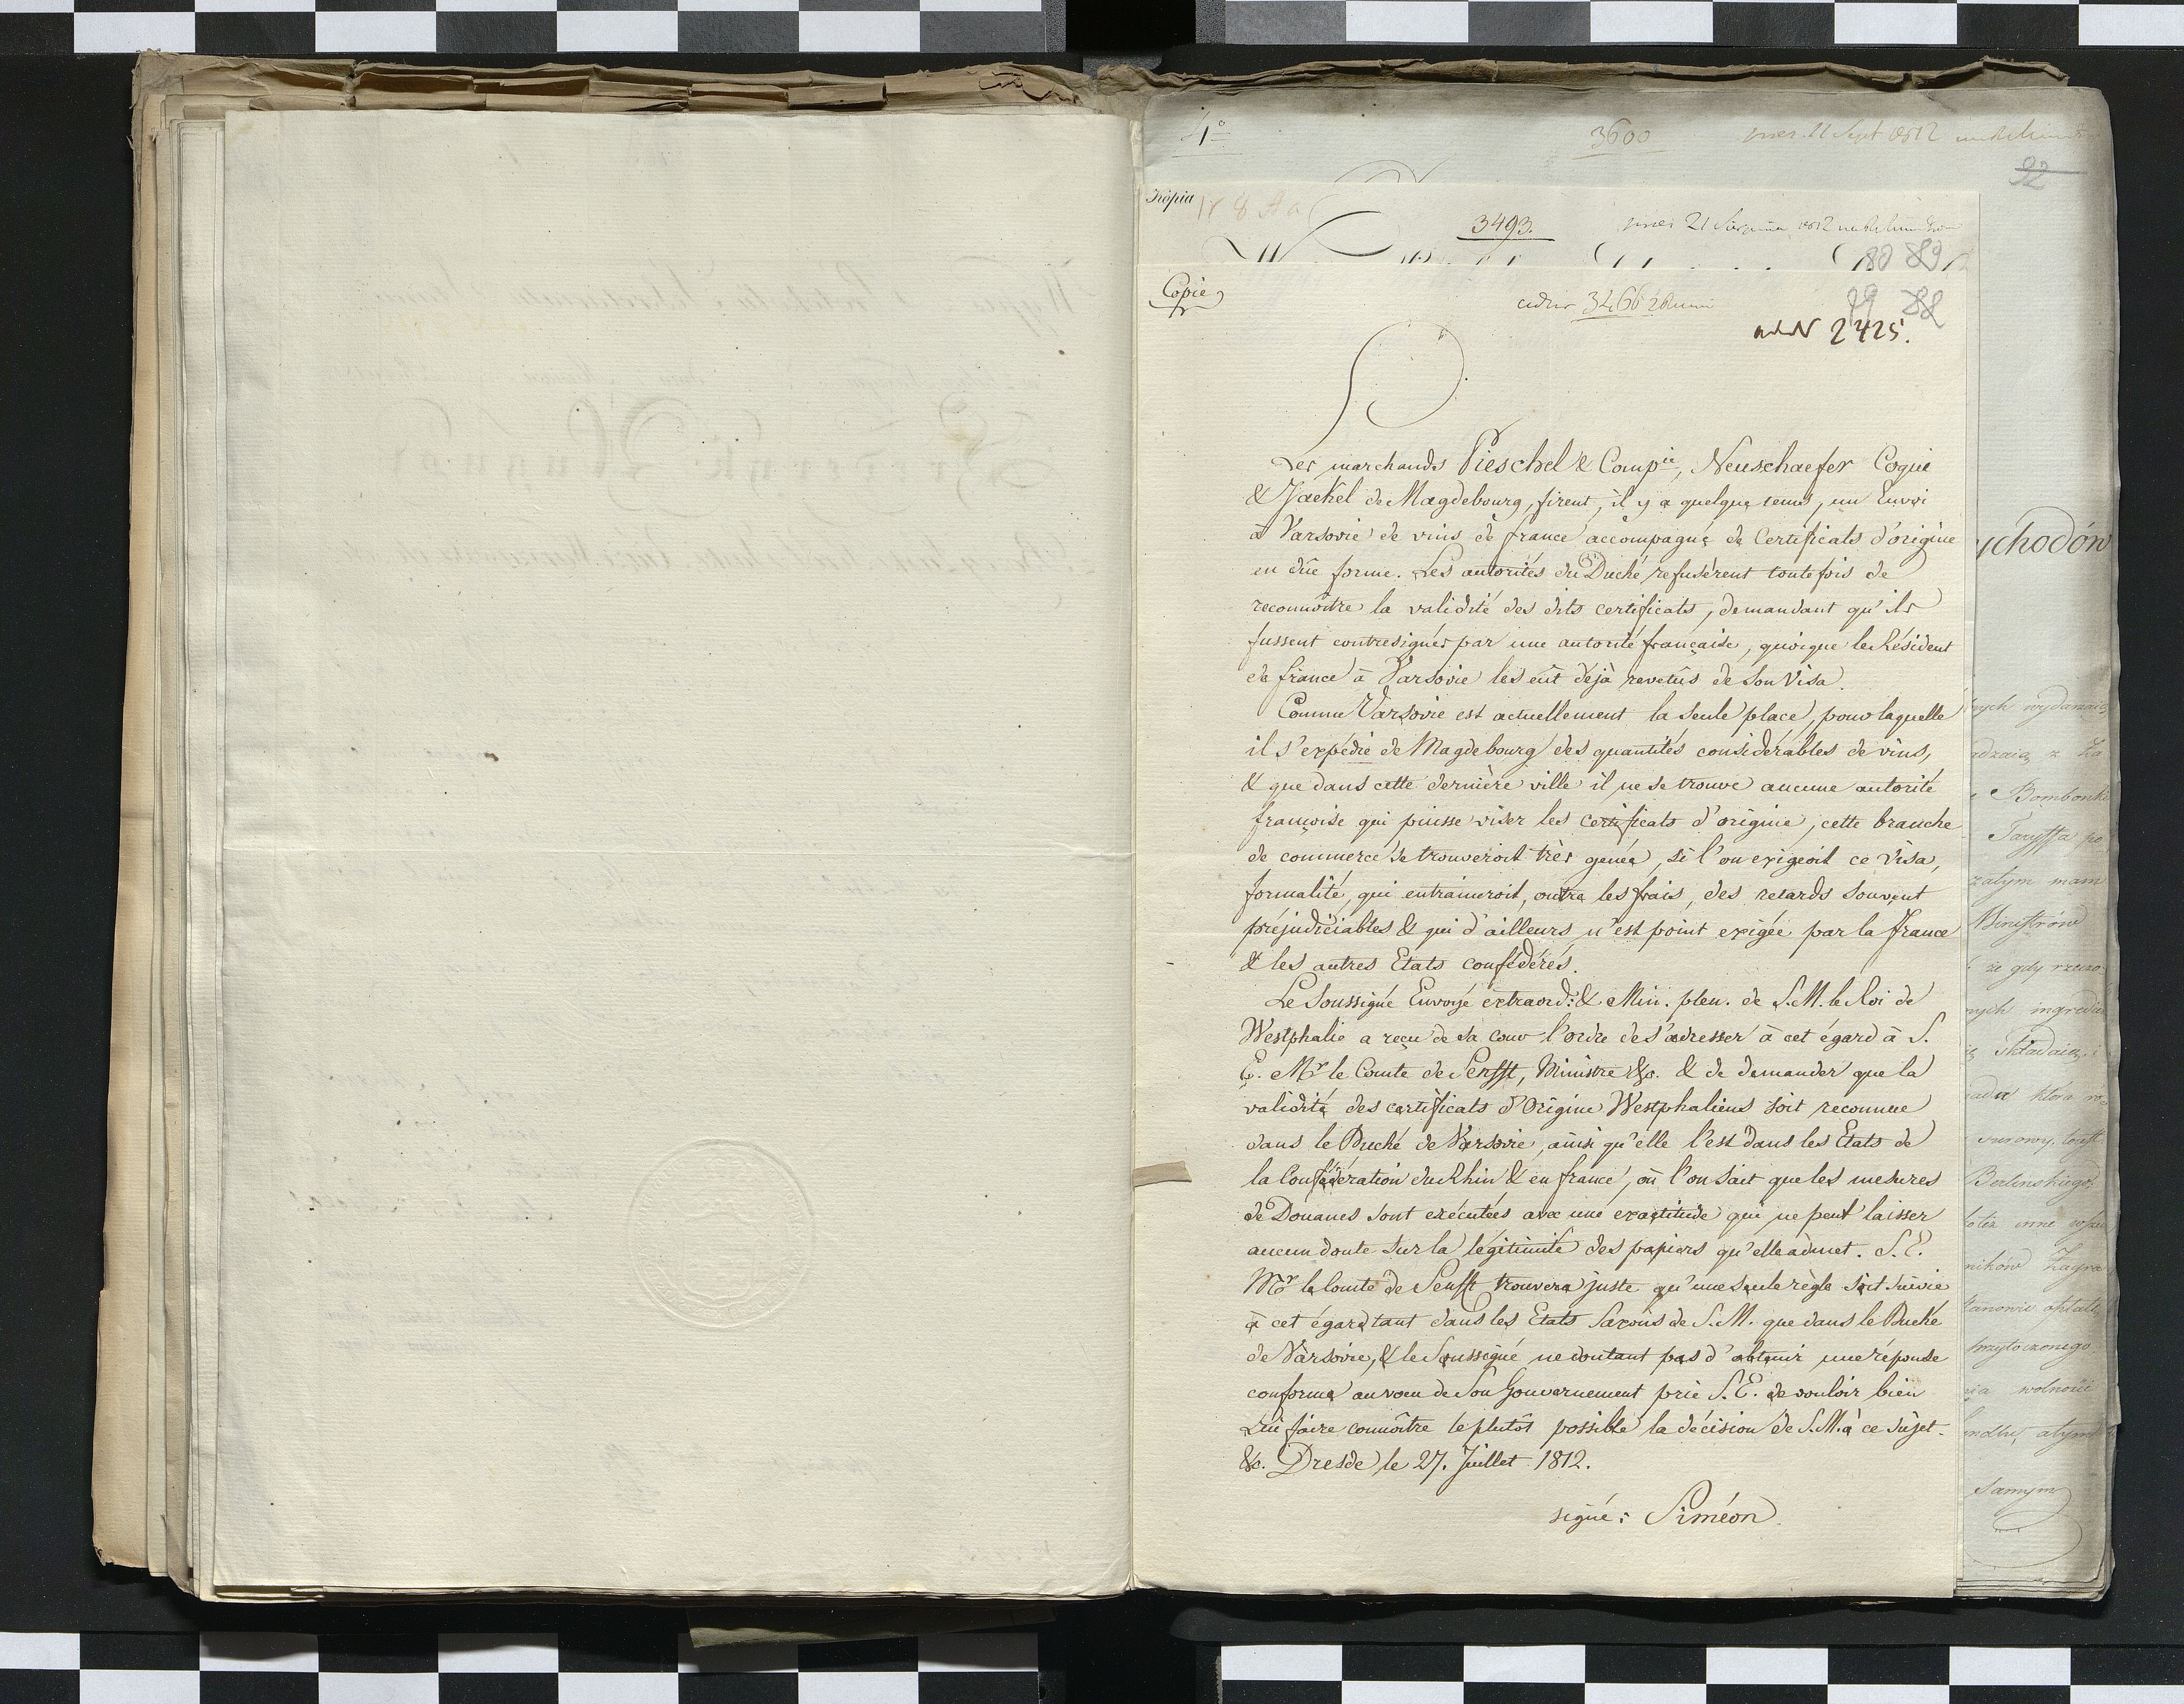 4°
3600
92
Kopia
3493.
80 89
Copie
3466
79 88
ad N 2425.
Les marchands Pieschel & Compie, Neuschaefer Coqui
& Jaekel de Magdebourg, firent, il y a quelque tems, un Envoi
à Varsovie de vins de france accompagné de Certificats d'origine
en dûe forme. Les autorités du Duché refusèrent toutefois de
reconnoître la validité des dits certificats, demandant qu'ils
fussent contresignés par une autorité française, quoique le Résident
de france à Varsovie les eût déjà revetûs de Son Visa.
Comme Varsovie est actuellement la seule place, pour laquelle
il s'expédie de Magdebourg des quantités considérables de vins,
& que dans cette dernière ville il ne se trouve aucune autorité
françoise qui puisse viser les certificats d'origine, cette branche
de commerce se trouveroit très genée, si l'on exigeoit ce Visa,
formalité, qui entraineroit, outre les frais, des retards souvent
préjudiciables & qui d'ailleurs n'est point exigée par la France
& les autres Etats confédérés.
Le Soussigné Envoyé extraord: & Min. plen. de S. M. le Roi de
Westphalie a reçu de sa cour l'ordre de s'adresser à cet égard à S.
E. Mr le Comte de Senfft, Ministre &c. & de demander que la
validité des certificats d'Origine Westphaliens soit reconnue
dans le Duché de Varsovie, ainsi qu'elle l'est dans les Etats de
la Confédération du Rhin & en france, où l'on sait que les mesures
de Douanes sont exécutées avec une exactitude qui ne peut laisser
aucun doute sur la légitimité des papiers qu'elle admet. S. E.
Mr le Comte de Senfft trouvera juste qu'une seule règle soit suivie
à cet égard tant dans les Etats Saxons de S. M. que dans le Duché
de Varsovie, & le Soussigné ne doutant pas d'obtenir une réponse
conforme au voeu de Son Gouvernement prie S. E. de vouloir bien
Lui faire connoître le plutôt possible la décision de S. M. à ce sujet.
&c. Dresde le 27. Juillet 1812.
signé: Siméon.
ychodów
Bombonki
Taryffa po
zatym mam
Ministrów
że gdy rzeczo
nych ingredie
składaią i
która ro
Berlińskiego
przytoczonego
wolności
Samym